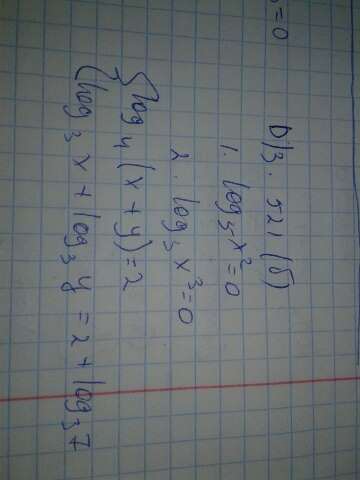 = 0
D/З. 521 (б)
1. log₅ x² = 0
2. log₃ x³ = 0
{ log₄ (x + y) = 2
log₃ x + log₃ y = 2 + log₃ 7